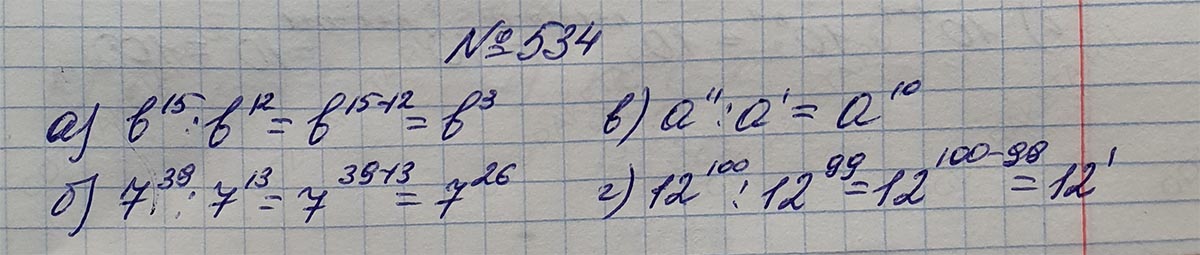 № 534
а) b¹⁵ : b¹² = b¹⁵⁻¹² = b³
в) a¹¹ : a¹ = a¹⁰
б) 7³⁹ : 7¹³ = 7³⁹⁻¹³ = 7²⁶
г) 12¹⁰⁰ : 12⁹⁹ = 12¹⁰⁰⁻⁹⁹ = 12¹